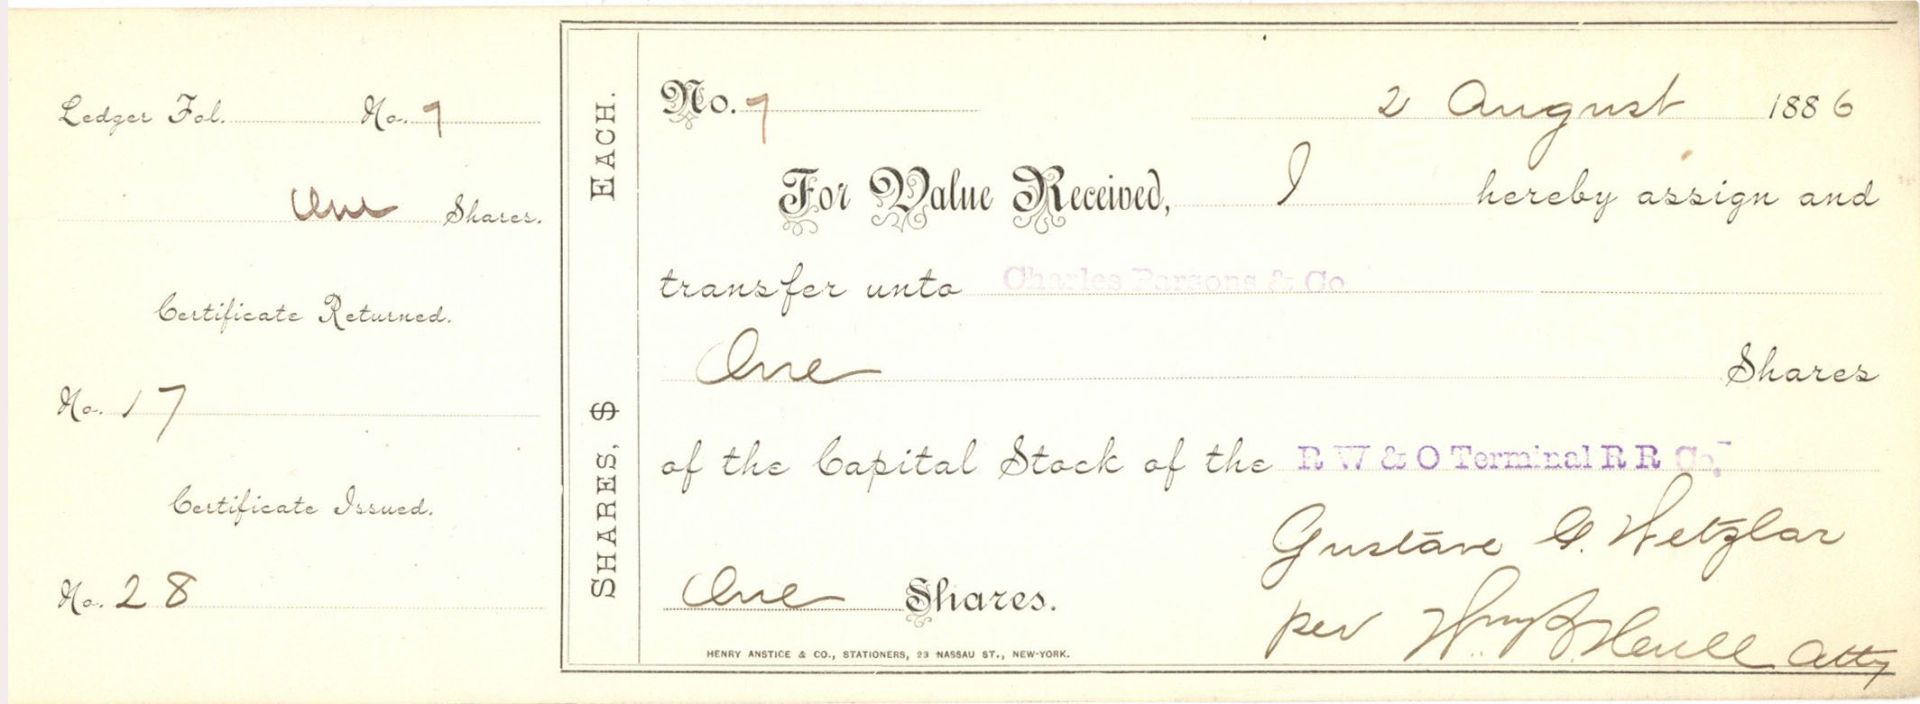 Ledger Fol. No. 7
One Shares.
Certificate Returned.
No. 17
Certificate Issued.
No. 28
SHARES, $ EACH.
No. 7 2 August 1886
For Value Received, I hereby assign and
transfer unto Charles Parsons & Co.
One Shares
of the Capital Stock of the R W & O Terminal R R Co.
Gustave G. Wetzlar
One Shares.
per Wm B. Atty
HENRY ANSTICE & CO., STATIONERS, 23 NASSAU ST., NEW-YORK.